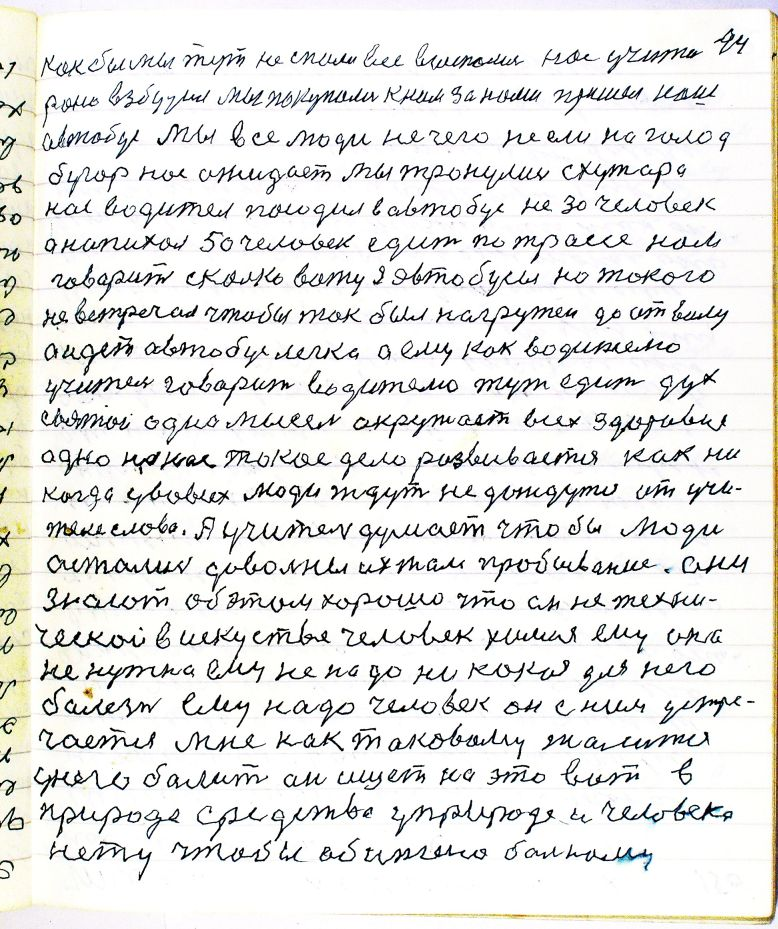 94
как бы мы тут не спали все выспали нас учите
рано взбудил мы покупали к нам за нами пришел наш
автобус мы все люди нечего не если на голод
бугор нас ожидает мы тронулис схутара
нас водител посодил в автобус не 30 человек
а напихал 50 человек едит по трассе нам
говарит сколко вожу я автобусы но токого
не встречал чтобы так был нагружен до отвалу
а идет автобус легка а ему как водителю
учител говарит водителю тут едит дух
святои одна мысел окружает всех здоровия
одно на нас токое дело розвивается как ни
когда у всех люди ждут не дождутся от учи-
теле слова. А учител думает что бы люди
астались доволны их там пробывание. они
знают об этом хорошо что он не техни-
ческой в искустве человек химия ему она
не нужна ему не надо ни кокоя для него
балезн ему надо человек он с ним устре-
чается мне как таковому жалится
у него балит он ищет на это вот в
природе средства у природе и человека
нету чтобы обижено балному